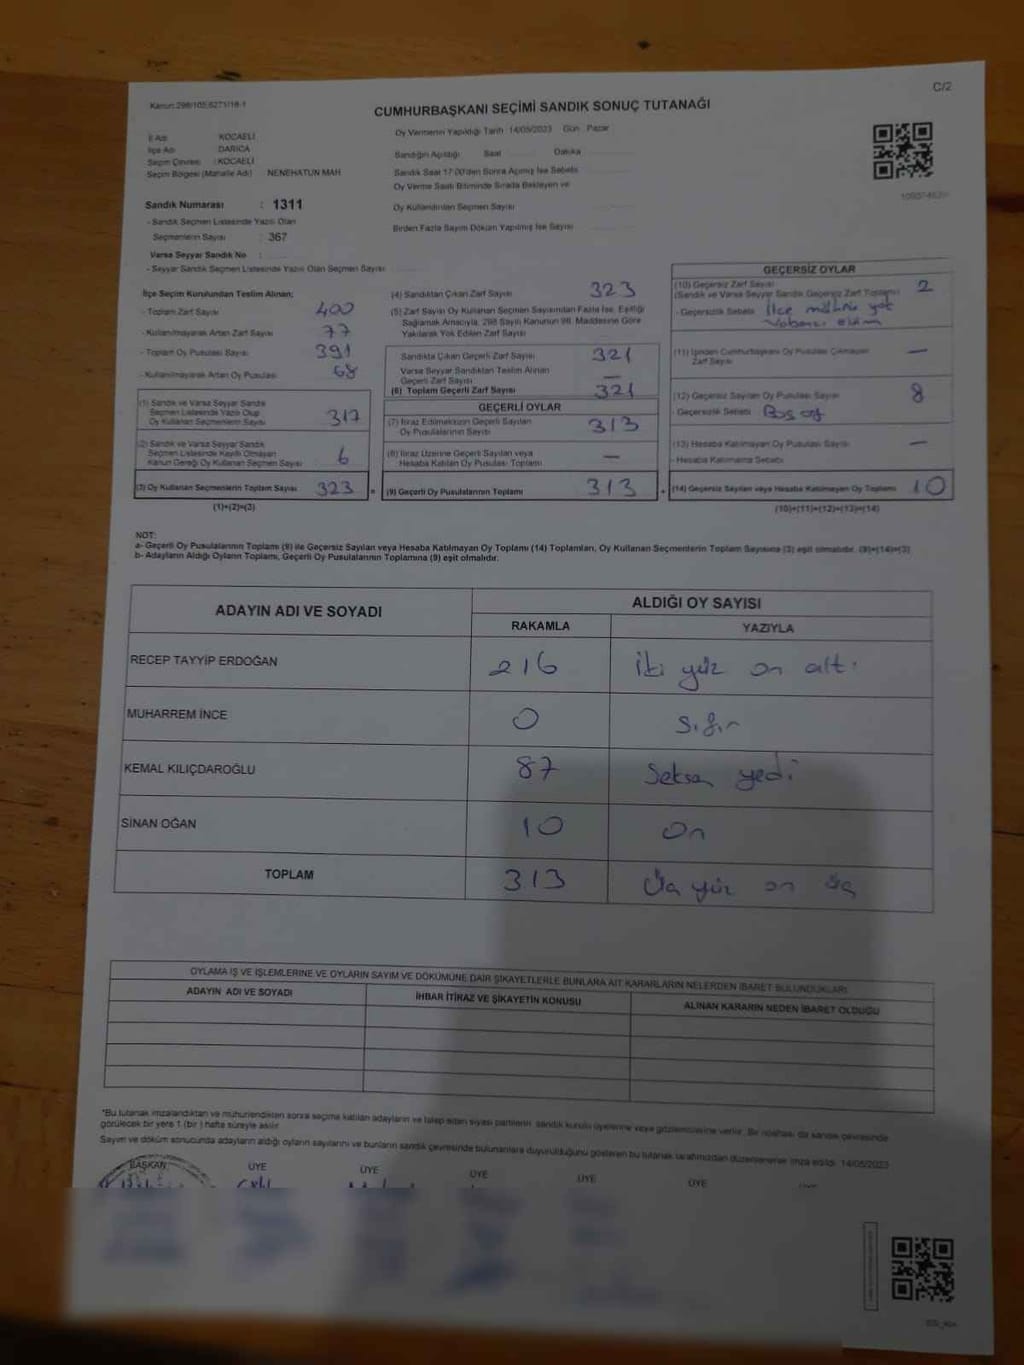 Kanun:298/105;6271/18-1
C/2
CUMHURBAŞKANI SEÇİMİ SANDIK SONUÇ TUTANAĞI
İl Adı KOCAELİ
İlçe Adı DARICA
Seçim Çevresi : KOCAELİ
Seçim Bölgesi (Mahalle Adı) NENEHATUN MAH
Sandık Numarası : 1311
- Sandık Seçmen Listesinde Yazılı Olan
Seçmenlerin Sayısı : 367
Varsa Seyyar Sandık No :
- Seyyar Sandık Seçmen Listesinde Yazılı Olan Seçmen Sayısı
Oy Vermenin Yapıldığı Tarih 14/05/2023 Gün Pazar
Sandığın Açıldığı Saat Dakika
Sandık Saat 17.00'den Sonra Açılmış İse Sebebi
Oy Verme Saati Bitiminde Sırada Bekleyen ve
Oy Kullandırılan Seçmen Sayısı
Birden Fazla Sayım Döküm Yapılmış İse Sayısı
İlçe Seçim Kurulundan Teslim Alınan;
- Toplam Zarf Sayısı 400
- Kullanılmayarak Artan Zarf Sayısı 77
- Toplam Oy Pusulası Sayısı 391
- Kullanılmayarak Artan Oy Pusulası 68
(1) Sandık ve Varsa Seyyar Sandık
Seçmen Listesinde Yazılı Olup
Oy Kullanan Seçmenlerin Sayısı 317
(2) Sandık ve Varsa Seyyar Sandık
Seçmen Listesinde Kayıtlı Olmayan
Kanun Gereği Oy Kullanan Seçmen Sayısı 6
(3) Oy Kullanan Seçmenlerin Toplam Sayısı 323
(1)+(2)=(3)
(4) Sandıktan Çıkan Zarf Sayısı 323
(5) Zarf Sayısı Oy Kullanan Seçmen Sayısından Fazla İse, Eşitliği
Sağlamak Amacıyla, 298 Sayılı Kanunun 98. Maddesine Göre
Yakılarak Yok Edilen Zarf Sayısı
Sandıkta Çıkan Geçerli Zarf Sayısı 321
Varsa Seyyar Sandıktan Teslim Alınan
Geçerli Zarf Sayısı —
(6) Toplam Geçerli Zarf Sayısı 321
GEÇERLİ OYLAR
(7) İtiraz Edilmeksizin Geçerli Sayılan
Oy Pusulalarının Sayısı 313
(8) İtiraz Üzerine Geçerli Sayılan veya
Hesaba Katılan Oy Pusulası Toplamı —
= (9) Geçerli Oy Pusulalarının Toplamı 313
GEÇERSİZ OYLAR
(10) Geçersiz Zarf Sayısı
(Sandık ve Varsa Seyyar Sandık Geçersiz Zarf Toplamı) 2
- Geçersizlik Sebebi İlçe mührü yok
(11) İçinden Cumhurbaşkanı Oy Pusulası Çıkmayan
Zarf Sayısı —
(12) Geçersiz Sayılan Oy Pusulası Sayısı 8
- Geçersizlik Sebebi Boş oy
(13) Hesaba Katılmayan Oy Pusulası Sayısı —
- Hesaba Katılmama Sebebi
+ (14) Geçersiz Sayılan veya Hesaba Katılmayan Oy Toplamı 10
(10)+(11)+(12)+(13)=(14)
NOT:
a- Geçerli Oy Pusulalarının Toplamı (9) ile Geçersiz Sayılan veya Hesaba Katılmayan Oy Toplamı (14) Toplamları, Oy Kullanan Seçmenlerin Toplam Sayısına (3) eşit olmalıdır. (9)+(14)=(3)
b- Adayların Aldığı Oyların Toplamı, Geçerli Oy Pusulalarının Toplamına (9) eşit olmalıdır.
ADAYIN ADI VE SOYADI ALDIĞI OY SAYISI
RAKAMLA YAZIYLA
RECEP TAYYİP ERDOĞAN 216 İki yüz on altı
MUHARREM İNCE 0 Sıfır
KEMAL KILIÇDAROĞLU 87 Seksen yedi
SİNAN OĞAN 10 On
TOPLAM 313 Üç yüz on üç
OYLAMA İŞ VE İŞLEMLERİNE VE OYLARIN SAYIM VE DÖKÜMÜNE DAİR ŞİKAYETLERLE BUNLARA AİT KARARLARIN NELERDEN İBARET BULUNDUKLARI
ADAYIN ADI VE SOYADI İHBAR İTİRAZ VE ŞİKAYETİN KONUSU ALINAN KARARIN NEDEN İBARET OLDUĞU
*Bu tutanak imzalandıktan ve mühürlendikten sonra seçime katılan adayların ve talep eden siyasi partilerin sandık kurulu üyelerine veya gözlemcilerine verilir. Bir nüshası da sandık çevresinde
görülecek bir yere 1 (bir) hafta süreyle asılır.
Sayım ve döküm sonucunda adayların aldığı oyların sayılarını ve bunların sandık çevresinde bulunanlara duyurulduğunu gösteren bu tutanak tarafımızdan düzenlenerek imza edildi. 14/05/2023
BAŞKAN ÜYE ÜYE ÜYE ÜYE ÜYE